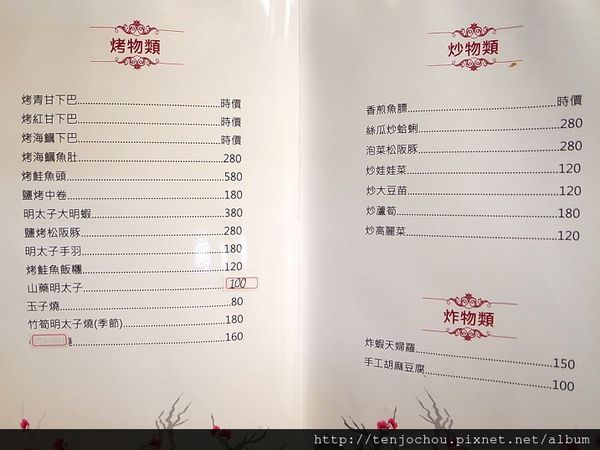 烤物類
烤青甘下巴 時價
烤紅甘下巴 時價
烤海鱺下巴 時價
烤海鱺魚肚 280
烤鮭魚頭 580
鹽烤中卷 180
明太子大明蝦 380
鹽烤松阪豚 280
明太子手羽 180
烤鮭魚飯糰 120
山藥明太子 100
玉子燒 80
竹筍明太子燒(季節) 180
160
炒物類
香煎魚膘 時價
絲瓜炒蛤蜊 280
泡菜松阪豚 280
炒娃娃菜 120
炒大豆苗 120
炒蘆筍 180
炒高麗菜 120
炸物類
炸蝦天婦羅 150
手工胡麻豆腐 100
http://tenjochou.pixnet.net/album